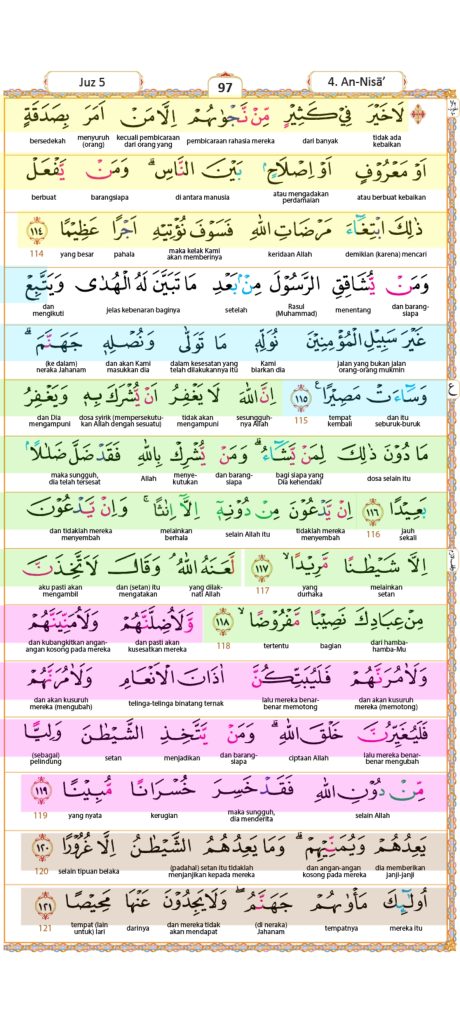 Juz 5
97
4. An-Nisā’
لَا خَيْرَ فِيْ كَثِيْرٍ مِّنْ نَّجْوٰىهُمْ اِلَّا مَنْ اَمَرَ بِصَدَقَةٍ
tidak ada kebaikan dari banyak pembicaraan rahasia mereka kecuali pembicaraan dari orang yang menyuruh (orang) bersedekah
اَوْ مَعْرُوْفٍ اَوْ اِصْلَاحٍۢ بَيْنَ النَّاسِۗ وَمَنْ يَّفْعَلْ
atau berbuat kebaikan atau mengadakan perdamaian di antara manusia barangsiapa berbuat
ذٰلِكَ ابْتِغَاۤءَ مَرْضَاتِ اللّٰهِ فَسَوْفَ نُؤْتِيْهِ اَجْرًا عَظِيْمًا ١١٤
demikian (karena) mencari keridaan Allah maka kelak Kami akan memberinya pahala yang besar 114
وَمَنْ يُّشَاقِقِ الرَّسُوْلَ مِنْۢ بَعْدِ مَا تَبَيَّنَ لَهُ الْهُدٰى وَيَتَّبِعْ
dan barang-siapa menentang Rasul (Muhammad) setelah jelas kebenaran baginya dan mengikuti
غَيْرَ سَبِيْلِ الْمُؤْمِنِيْنَ نُوَلِّهٖ مَا تَوَلّٰى وَنُصْلِهٖ جَهَنَّمَۗ
jalan yang bukan jalan orang-orang mukmin Kami biarkan dia dalam kesesatan yang telah dilakukannya itu dan akan Kami masukkan dia (ke dalam) neraka Jahanam
وَسَاۤءَتْ مَصِيْرًا ࣖ ١١٥ اِنَّ اللّٰهَ لَا يَغْفِرُ اَنْ يُّشْرَكَ بِهٖ وَيَغْفِرُ
dan itu seburuk-buruk tempat kembali 115 sesungguh-nya Allah tidak akan mengampuni dosa syirik (mempersekutu-kan Allah dengan sesuatu) dan Dia mengampuni
مَا دُوْنَ ذٰلِكَ لِمَنْ يَّشَاۤءُۗ وَمَنْ يُّشْرِكْ بِاللّٰهِ فَقَدْ ضَلَّ ضَلٰلًاۢ
dosa selain itu bagi siapa yang Dia kehendaki dan barang-siapa menye-kutukan Allah maka sungguh, dia telah tersesat
بَعِيْدًا ١١٦ اِنْ يَّدْعُوْنَ مِنْ دُوْنِهٖٓ اِلَّآ اِنٰثًاۚ وَاِنْ يَّدْعُوْنَ
jauh sekali 116 tidaklah mereka menyembah selain Allah itu melainkan berhala dan tidaklah mereka menyembah
اِلَّا شَيْطٰنًا مَّرِيْدًاۙ ١١٧ لَّعَنَهُ اللّٰهُۘ وَقَالَ لَاَتَّخِذَنَّ
melainkan setan yang durhaka 117 yang dilak-nati Allah dan (setan) itu mengatakan aku pasti akan mengambil
مِنْ عِبَادِكَ نَصِيْبًا مَّفْرُوْضًاۙ ١١٨ وَّلَاُضِلَّنَّهُمْ وَلَاُمَنِّيَنَّهُمْ
dari hamba-hamba-Mu bagian tertentu 118 dan pasti akan kusesatkan mereka dan kubangkitkan angan-angan kosong pada mereka
وَلَاٰمُرَنَّهُمْ فَلَيُبَتِّكُنَّ اٰذَانَ الْاَنْعَامِ وَلَاٰمُرَنَّهُمْ
dan akan kusuruh mereka (memotong) lalu mereka benar-benar memotong telinga-telinga binatang ternak dan akan kusuruh mereka (mengubah)
فَلَيُغَيِّرُنَّ خَلْقَ اللّٰهِۗ وَمَنْ يَّتَّخِذِ الشَّيْطٰنَ وَلِيًّا
lalu mereka benar-benar mengubah ciptaan Allah dan barang-siapa menjadikan setan (sebagai) pelindung
مِّنْ دُوْنِ اللّٰهِ فَقَدْ خَسِرَ خُسْرَانًا مُّبِيْنًا ١١٩
selain Allah maka sungguh, dia menderita kerugian yang nyata 119
يَعِدُهُمْ وَيُمَنِّيْهِمْۗ وَمَا يَعِدُهُمُ الشَّيْطٰنُ اِلَّا غُرُوْرًا ١٢٠
dia memberikan janji-janji dan angan-angan kosong pada mereka (padahal) setan itu tidaklah menjanjikan kepada mereka selain tipuan belaka 120
اُولٰۤىِٕكَ مَأْوٰىهُمْ جَهَنَّمُۖ وَلَا يَجِدُوْنَ عَنْهَا مَحِيْصًا ١٢١
mereka itu tempatnya (di neraka) Jahanam dan mereka tidak akan mendapat darinya tempat (lain untuk) lari 121